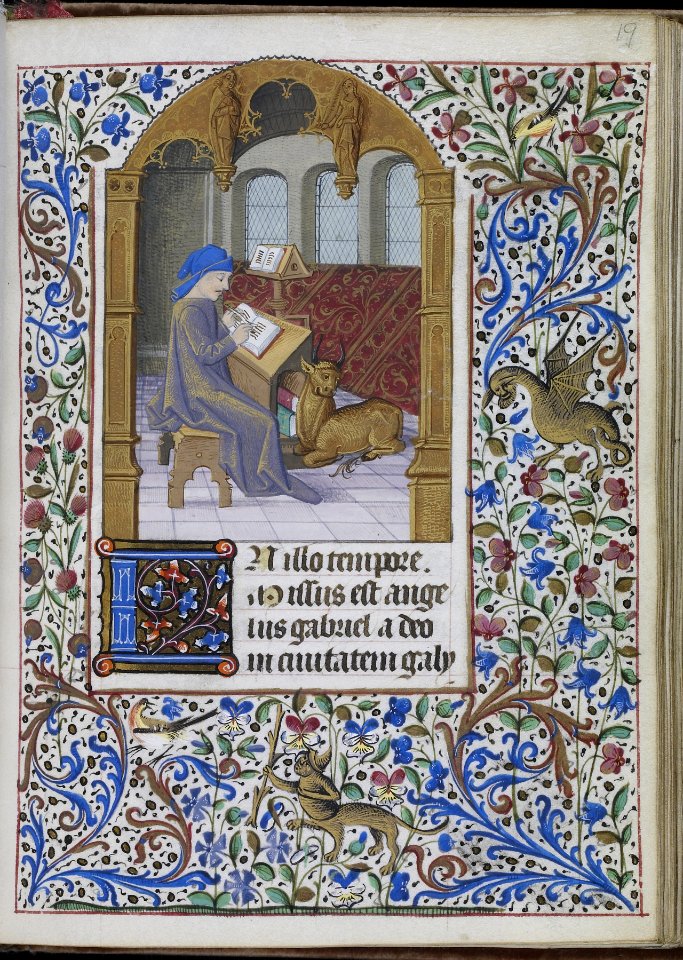 19
IN illo tempore.
Missus est ange
lus gabriel a deo
in ciuitatem galy